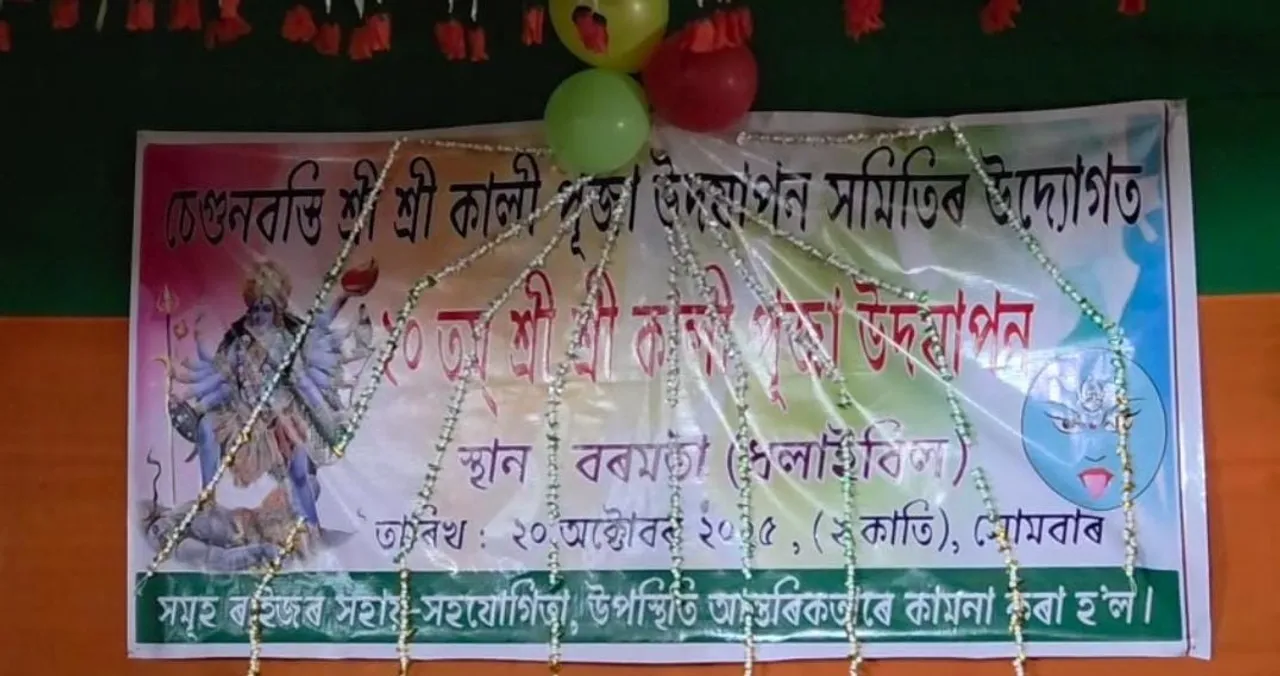 চেগুনবস্তি শ্ৰী শ্ৰী কালী পূজা উদযাপন সমিতিৰ উদ্যোগত
২০ তম্ শ্ৰী শ্ৰী কালী পূজা উদযাপন
স্থান বৰমতা (ধলাইবিল)
তাৰিখ : ২০ অক্টোবৰ ২০২৫, (২ কাতি), সোমবাৰ
সমূহ ৰাইজৰ সহায়-সহযোগিতা, উপস্থিতি আন্তৰিকতাৰে কামনা কৰা হ'ল।